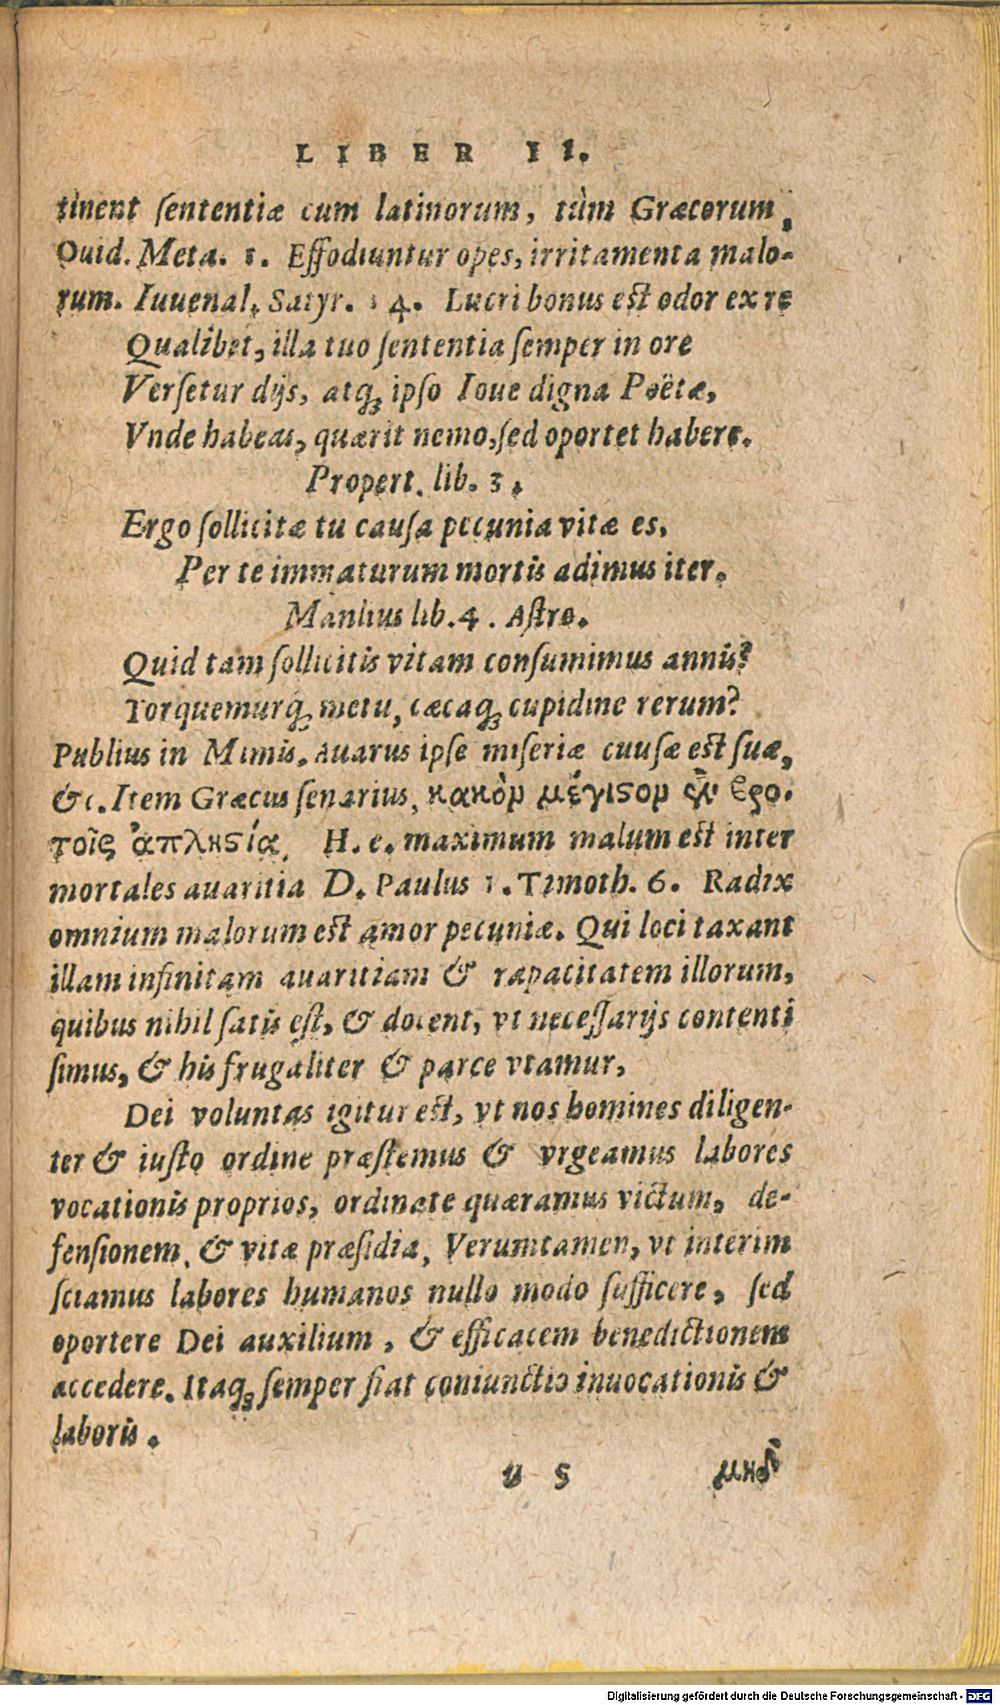 LIBER II.
tinent ſententiæ cum latinorum, tùm Græcorum,
Ouid. Meta. 1. Effodiuntur opes, irritamenta malo-
rum. Iuuenal. Satyr. 14. Lucri bonus est odor ex re
Qualibet, illa tuo ſententia ſemper in ore
Verſetur dijs, atq́ꝫ ipſo Ioue digna Poëtæ,
Vnde habeas, quærit nemo, ſed oportet habere.
Propert. lib. 3.
Ergo ſollicitæ tu cauſa pecunia vitæ es,
Per te immaturum mortis adimus iter.
Manlius lib. 4. Aſtro.
Quid tam ſollicitis vitam conſumimus annis?
Torquemurq́ꝫ metu, cæcaq́ꝫ cupidine rerum?
Publius in Mimis. Auarus ipſe miſeriæ cuuſæ est ſuæ,
&c. Item Græcus ſenarius, κακὸν μέγιϛον ἐν βρο-
τοῖς ἀπληϛία. H. e. maximum malum est inter
mortales auaritia D. Paulus 1. Timoth. 6. Radix
omnium malorum est amor pecuniæ. Qui loci taxant
illam infinitam auaritiam & rapacitatem illorum,
quibus nihil ſatis eſt, & docent, vt neceſſarijs contenti
ſimus, & his frugaliter & parce vtamur,
Dei voluntas igitur est, vt nos homines diligen-
ter & iuſto ordine præſtemus & vrgeamus labores
vocationis proprios, ordinate quæramus victum, de-
fenſionem, & vitæ præſidia, Verumtamen, vt interim
ſciamus labores humanos nullo modo ſufficere, ſed
oportere Dei auxilium, & efficacem benedictionem
accedere. Itaq́ꝫ ſemper fiat coniunctio inuocationis &
laboris.
u 5 μηδ
Digitalisierung gefördert durch die Deutsche Forschungsgemeinschaft - DFG